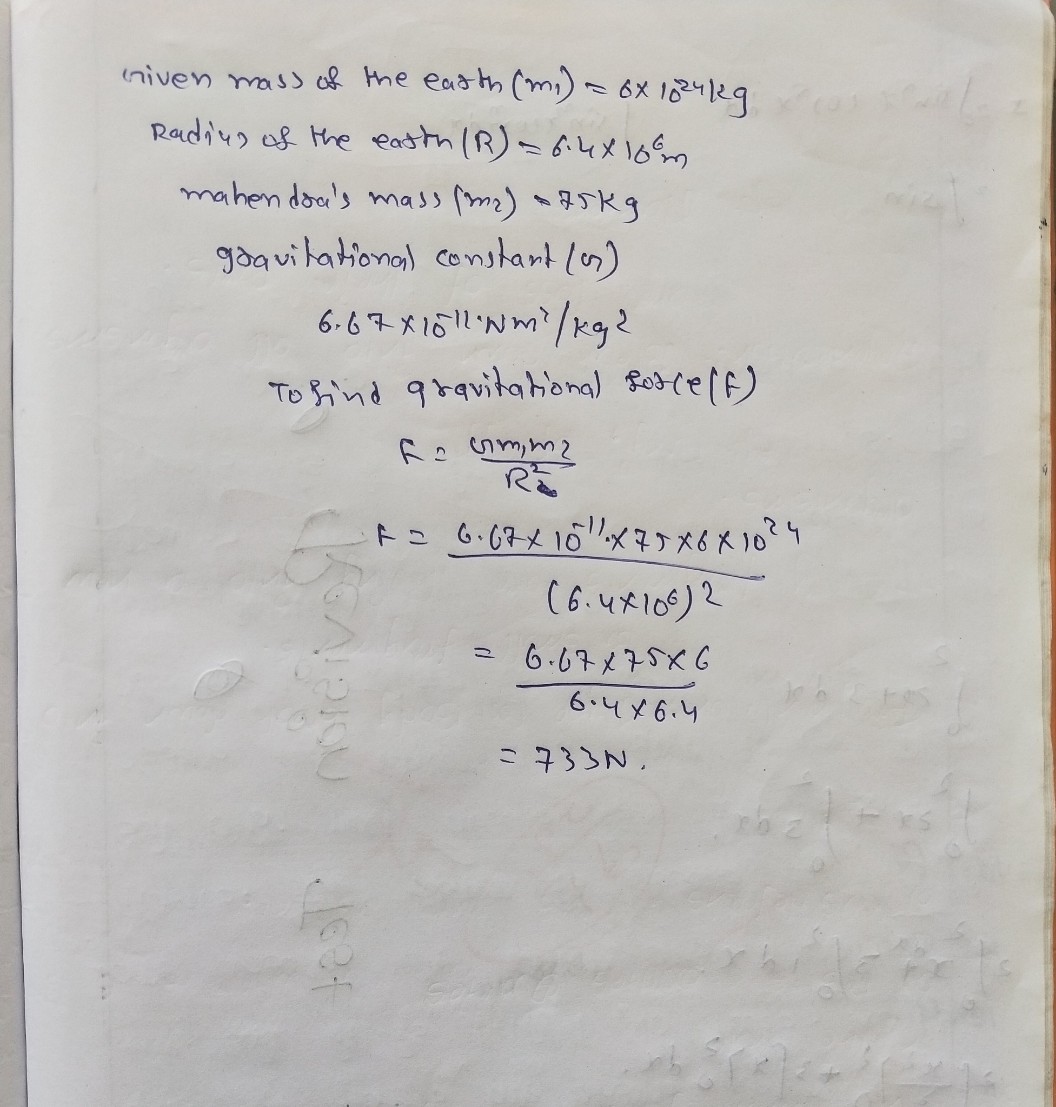 Given mass of the earth (m1) = 6 × 10^24 kg
Radius of the earth (R) = 6.4 × 10^6 m
mahendra's mass (m2) = 75 kg
gravitational constant (G)
6.67 × 10^-11 Nm²/kg²
To find gravitational force (F)
F = Gm1m2 / R²
F = 6.67 × 10^-11 × 75 × 6 × 10^24
(6.4 × 10^6)²
= 6.67 × 75 × 6
6.4 × 6.4
= 733 N.
Revision
Test